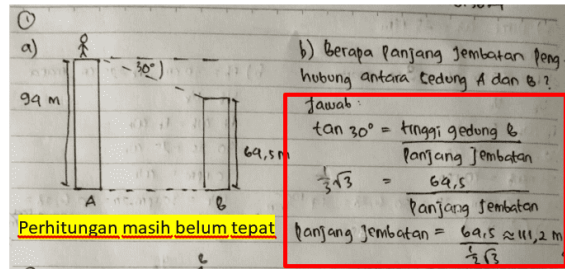 ①
a)
30°
94 m
64,5 m
A
B
Perhitungan masih belum tepat
b) Berapa Panjang Jembatan Peng
hubung antara Gedung A dan B ?
Jawab :
tan 30° = tinggi gedung B / Panjang Jembatan
1/3 √3 = 64,5 / Panjang Jembatan
Panjang Jembatan = 64,5 / 1/3 √3 ≈ 111,2 m